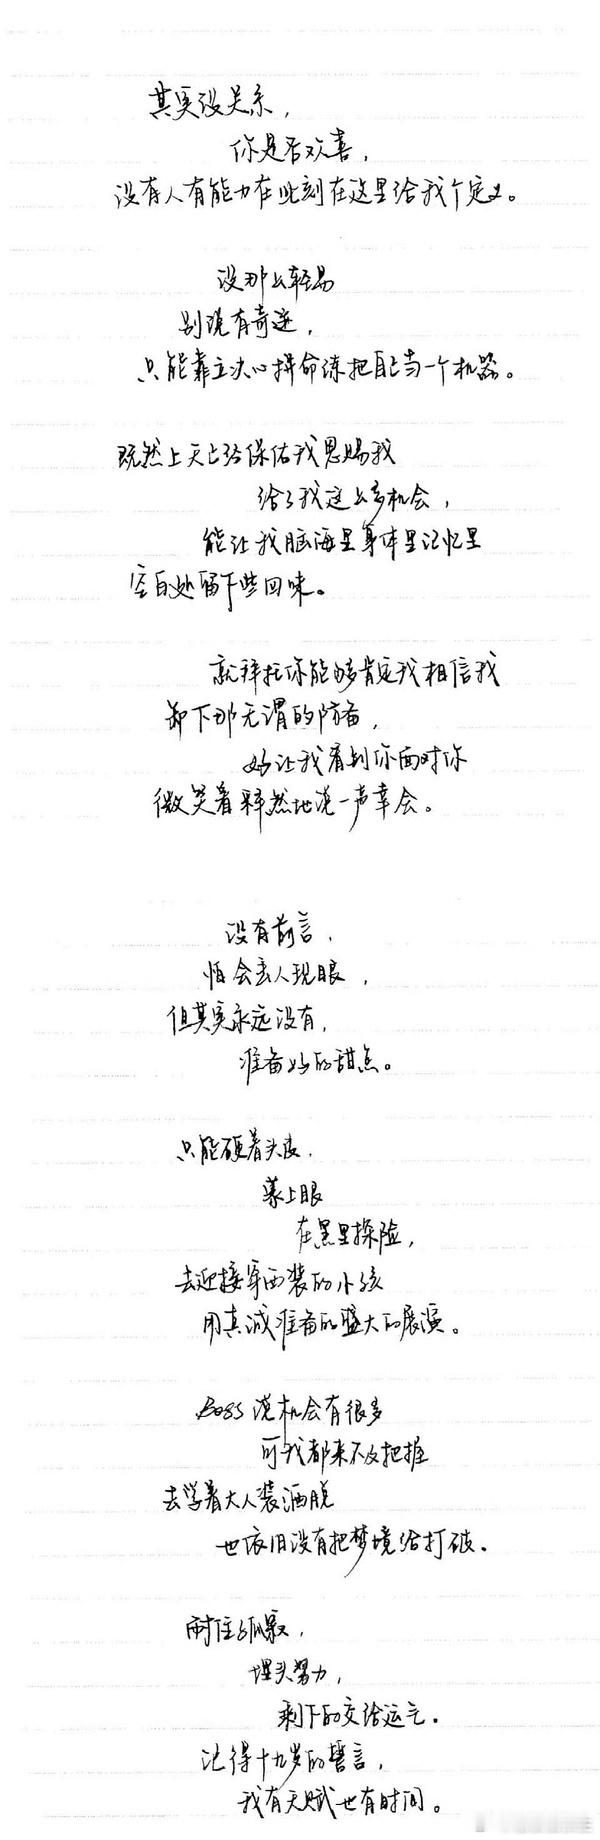 其实没关系，
你是否欢喜，
没有人有能力在此刻在这里给我个定义。
没那么轻易
别说有奇迹，
只能靠立决心拼命练把自己当一个机器。
既然上天已给保佑我恩赐我
给了我这么多机会，
能让我脑海里身体里记忆里
空白处留下些回味。
就拜托你能够肯定我相信我
卸下那无谓的防备，
好让我看到你面对你
微笑着释然地说一声幸会。
没有前言，
怕会丢人现眼，
但其实永远没有，
准备好的甜点。
只能硬着头皮，
蒙上眼
在黑里探险，
去迎接穿西装的小孩
用真诚准备的盛大的展演。
Boss说机会有很多
可我都来不及把握
去学着大人装洒脱
也依旧没有把梦境给打破。
耐住孤寂，
埋头努力，
剩下的交给运气。
记得十九岁的誓言，
我有天赋也有时间。